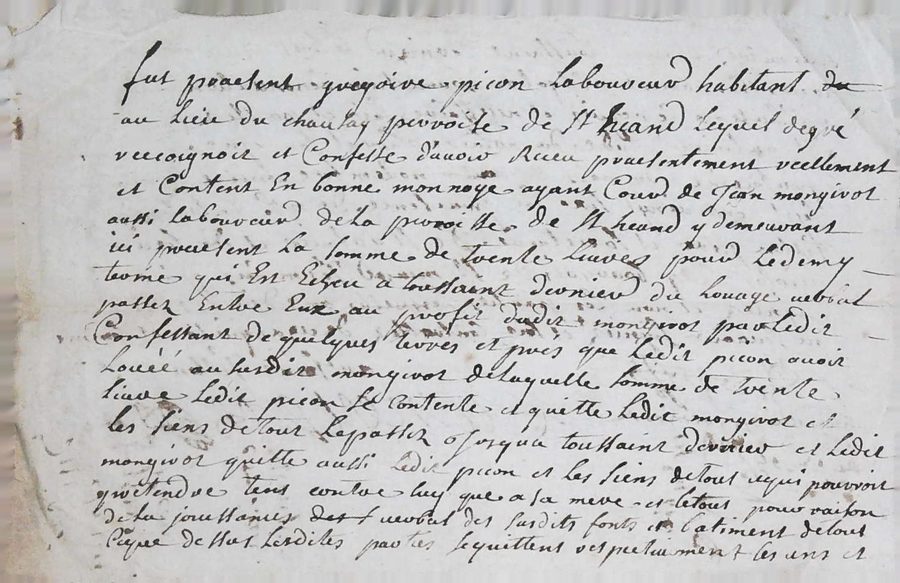 fut praesent gregoire picon laboureur habitant du
au lieu du chaulay parroisse de St heand lequel degré
reecognoit et Confesse d'avoir Receu praesentement reellement
et Content En bonne monnoye ayant Cour de Jean mongirot
aussi laboureur de la parroisse de St heand y demeurant
ici praesent La somme de trente livres pour Ledemy
terme qui Est Echeu a toussaint dernier du Louage verbal
passez Entre Eux au profit dudit mongirot par Ledit
Confessant de quelques terres et prés que Ledit picon avoit
Louéé au susdit mongirot delaquelle somme de trente
livre Ledit picon se contente et quitte Ledit mongirot et
les siens detout Lepassez Jusqua toussaint dernier et Ledit
mongirot quitte aussi Ledit picon et les siens detout cequi pouvroit
praetendre tens contre luy que a sa mere et letout pour raison
de la joussances verbal des susdits fonts et batiment detout
Ceque dessus Lesdites parties sequittent respectivement les uns et